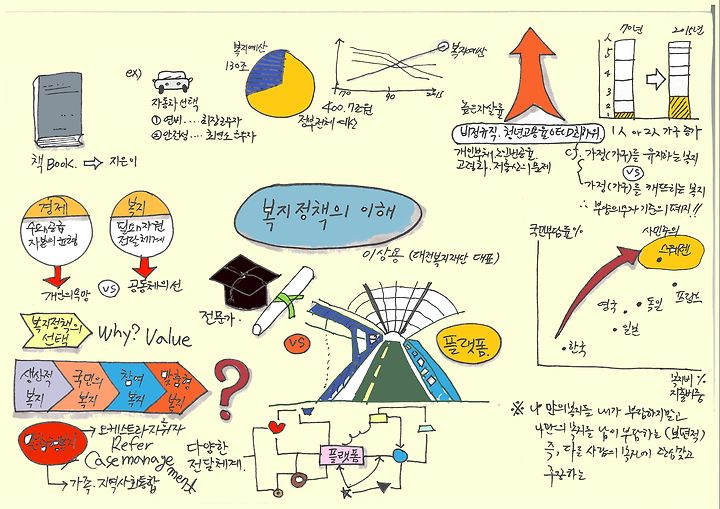 책 Book. ⇨ 지은이
ex)
자동차 선택
① 연비....최장
② 안전성....최연소
복지예산
130조
400.7조원
정부전체 예산
복지예산
70
90
2015
높은자살률
비정규직. 청년고용율 OECD최하위
개인부채
고령화. 저출산의 문제
70년
2015년
人
5
4
3
2
1
1人 or 2人 가구 증가
cf. 가정(가구)를 유지하는 복지
VS
가정(가구)를 깨뜨리는 복지
∴ 부양의무자 기준의 폐지!!
경제
수요&공급
자본의 논리
개인의 욕망
VS
복지
필요&자원
전달체계
공동체의 선
복지정책의 이해
이상용 (대전복지재단 대표)
복지정책의
선택
Why? Value
생산적
복지
국민의
복지
참여
복지
맞춤형
복지
?
오케스트라 지휘자
Refer
Case management
가족. 지역사회통합
전문가.
VS
플랫폼.
다양한
전달체계.
플랫폼
국민부담률%
사민주의
스웨덴
프랑스
영국
독일
일본
한국
복지비 %
지출비중
※ 나만의복지를 내가 부담하지말고
나만의 복지를 같이 부담하는 (보편적)
즉, 다른 사람의 복지에 관심갖고
주장하는